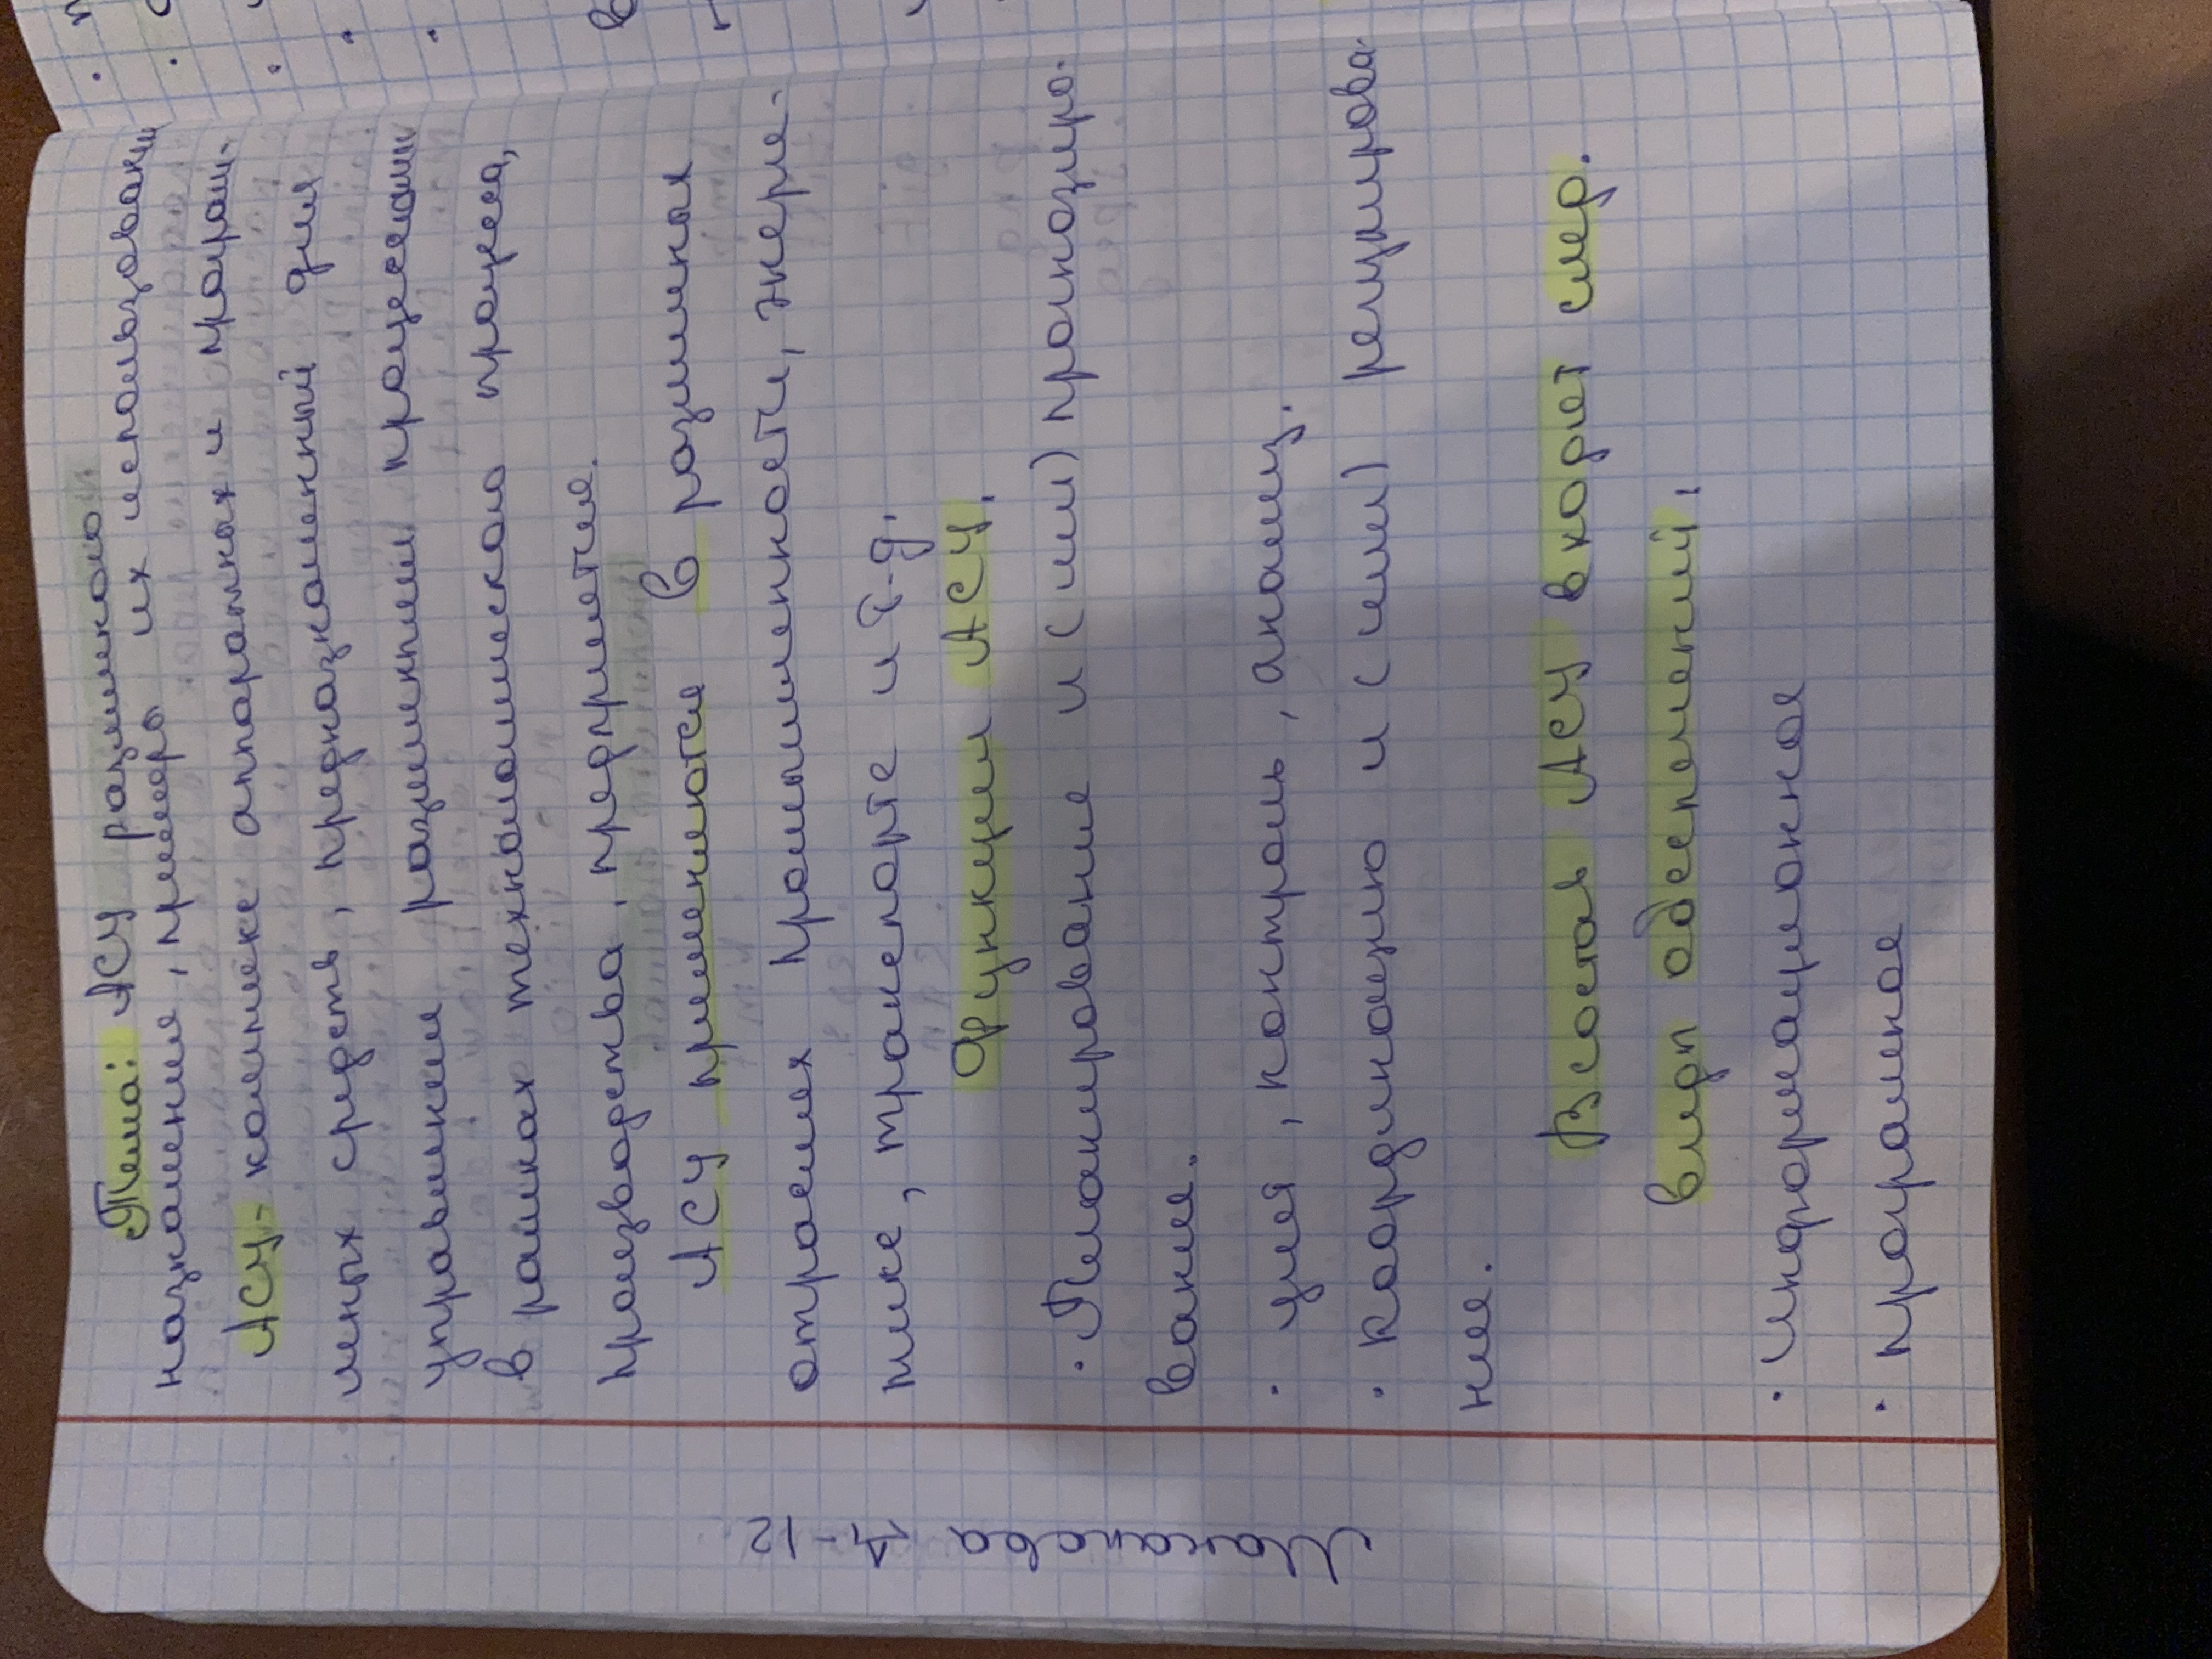 Тема: АСУ различного
назначения, примеры их использован
АСУ- комплекс аппаратных и програм-
мных средств, предназначенный для
управления различными процессами
в рамках технологического процесса,
производства, предприятия.
АСУ применяются в различных
отраслях промышленности, энерге-
тике, транспорте и т-д.
Функции АСУ.
· Планирование и (или) прогнозиро-
вание.
· учет, контроль, анализ.
· координацию и (или) регулирова-
ние.
В состав АСУ входят след.
виды обеспечений,
· информационное
· програмное
А-12